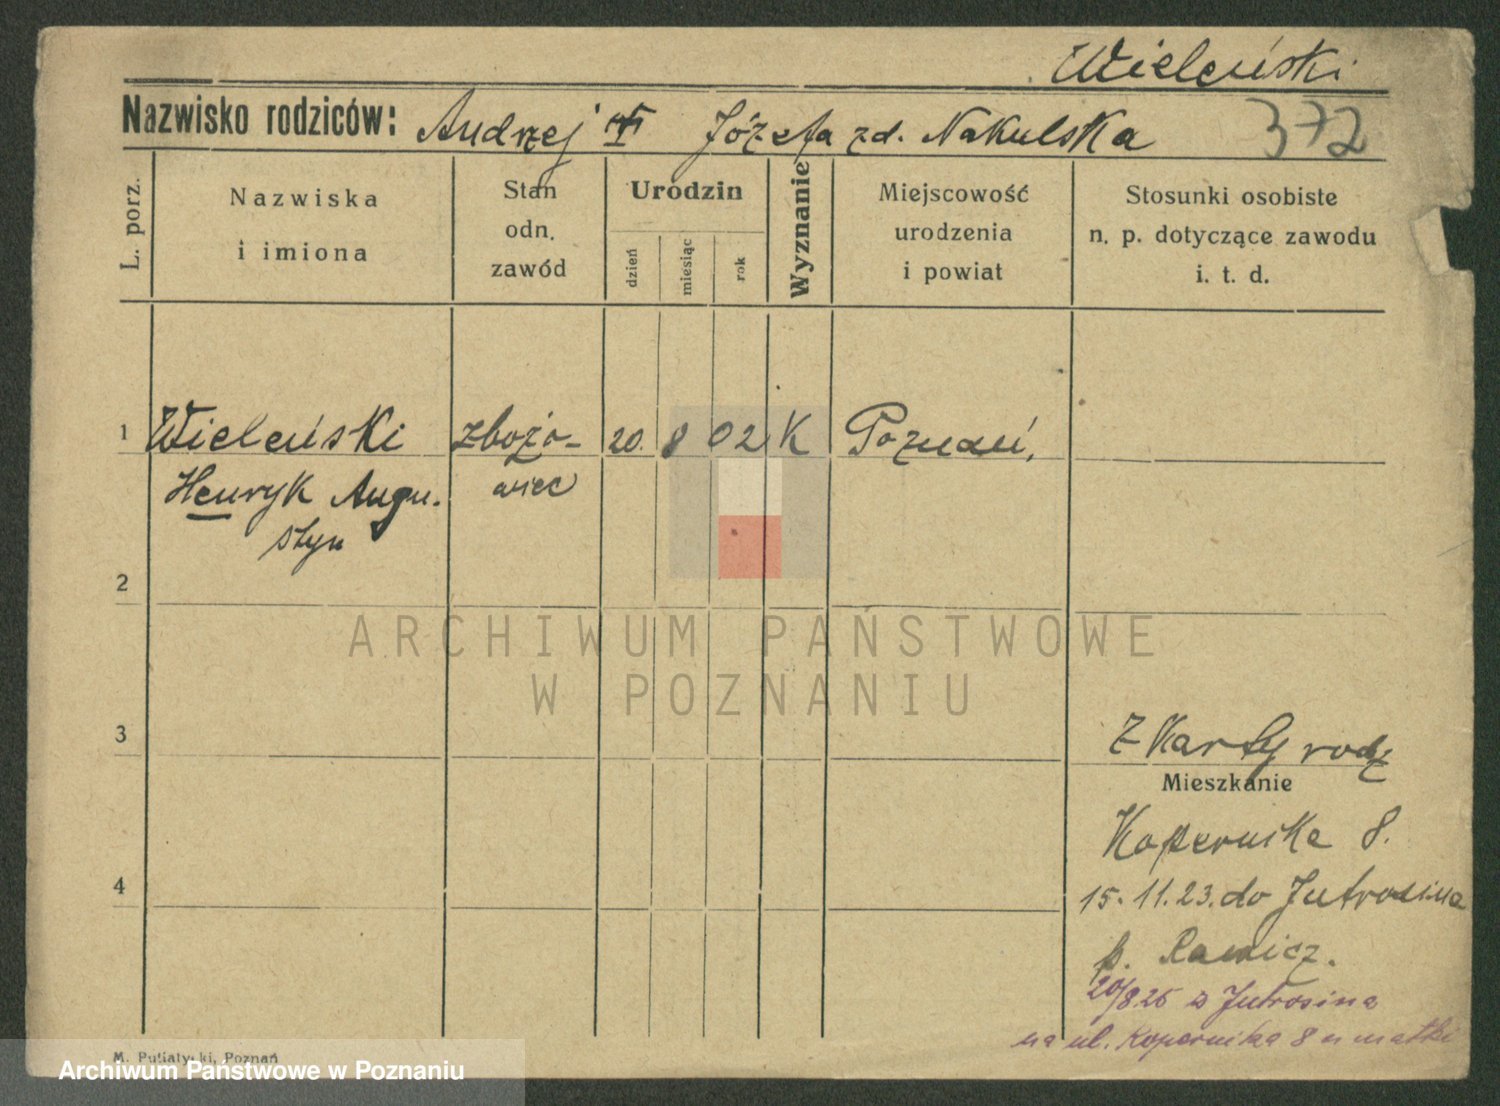 Wieleński
Nazwisko rodziców: Andrzej Józefa zd. Nakulska 372
L. porz.
Nazwiska
i imiona
Stan
odn.
zawód
Urodzin
dzień
miesiąc
rok
Wyznanie
Miejscowość
urodzenia
i powiat
Stosunki osobiste
n. p. dotyczące zawodu
i. t. d.
1 Wieleński zbożo- 20. 8 02 K Poznań,
Henryk Augu- wiec
styn
2
ARCHIWUM PAŃSTWOWE
W POZNANIU
3
Z Karty rodz
Mieszkanie
Kopernika 8.
4
15. 11. 23. do Jutrosina
p. Rawicz.
20/8 26 z Jutrosina
na ul. Kopernika 8 u matki
M. Putiatycki, Poznań
Archiwum Państwowe w Poznaniu